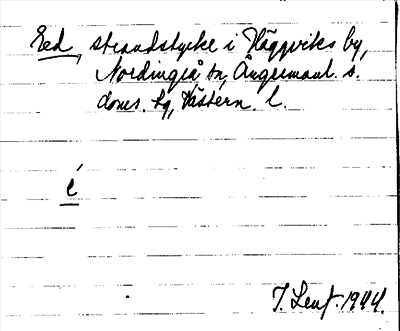 Eed, strandstycke i Häggviks by,
Nordingrå sn, Ångermanl. s.
doms. tg, Västern. l.
é
J. Lenf. 1944.